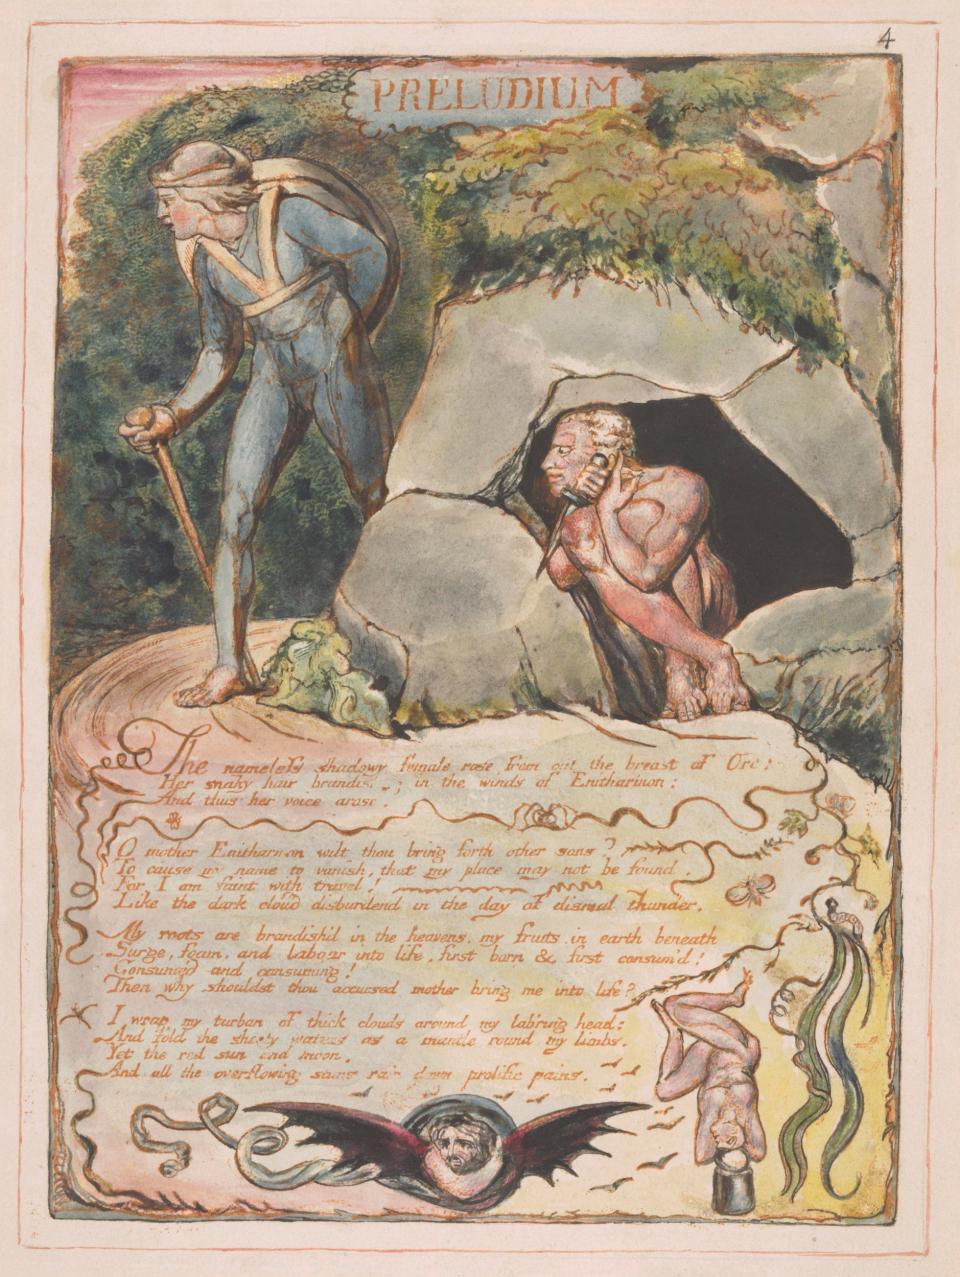 4
PRELUDIUM
The nameless shadowy female rose from out the breast of Orc:
Her snaky hair brandishing in the winds of Enitharmon;
And thus her voice arose.
O mother Enitharmon wilt thou bring forth other sons?
To cause my name to vanish, that my place may not be found.
For I am faint with travel!
Like the dark cloud disburdend in the day of dismal thunder.
My roots are brandish'd in the heavens. my fruits in earth beneath
Surge, foam, and labour into life, first born & first consum'd!
Consumed and consuming!
Then why shouldst thou accursed mother bring me into life?
I wrap my turban of thick clouds around my lab'ring head;
And fold the sheety waters as a mantle round my limbs.
Yet the red sun and moon,
And all the overflowing stars rain down prolific pains.